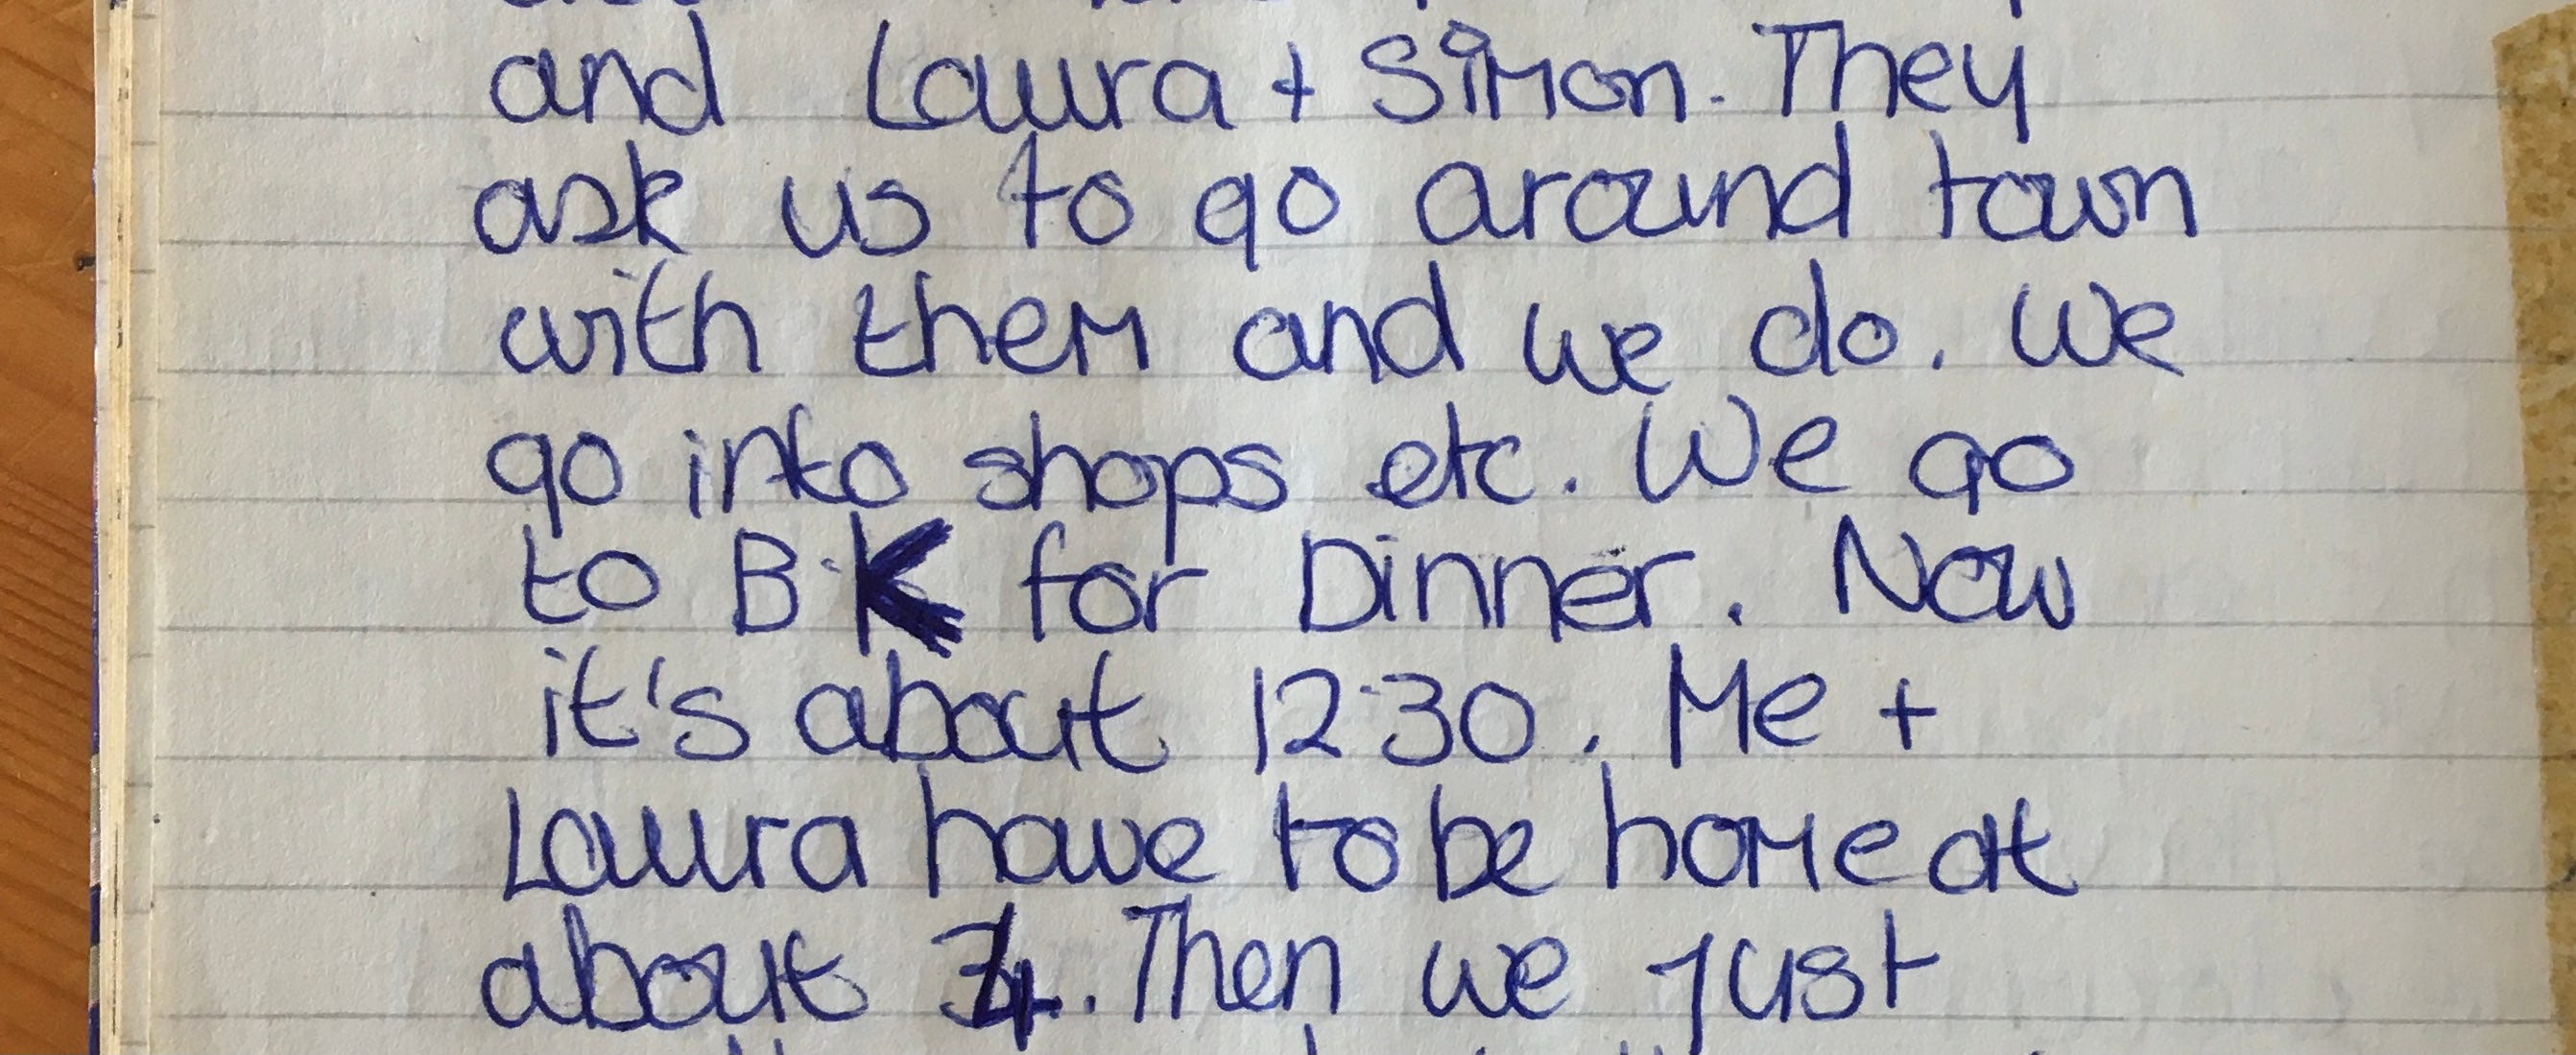 and Laura + Simon. They
ask us to go around town
with them and we do. We
go into shops etc. We go
to B.K for Dinner. Now
it's about 12:30. Me +
Laura have to be home at
about 4. Then we just